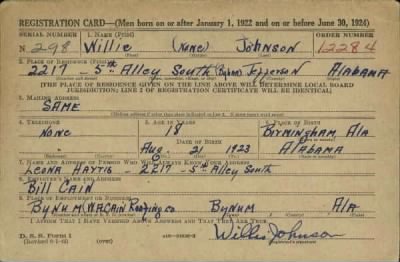 REGISTRATION CARD—(Men born on or after January 1, 1922 and on or before June 30, 1924)
SERIAL NUMBER 1. NAME (Print) ORDER NUMBER
N 298 Willie (None) Johnson 12284
2. PLACE OF RESIDENCE (Print)
2217 - 5th Alley South Jefferson Alabama
[THE PLACE OF RESIDENCE GIVEN ON THE LINE ABOVE WILL DETERMINE LOCAL BOARD
JURISDICTION; LINE 2 OF REGISTRATION CERTIFICATE WILL BE IDENTICAL]
3. MAILING ADDRESS
SAME
4. TELEPHONE 5. AGE IN YEARS 6. PLACE OF BIRTH
None 18 Birmingham Ala
DATE OF BIRTH
Aug. 21 1923 Alabama
7. NAME AND ADDRESS OF PERSON WHO WILL ALWAYS KNOW YOUR ADDRESS
Leona - 2217 - 5th Alley South
8. EMPLOYER'S NAME AND ADDRESS
Bill Cain
9. PLACE OF EMPLOYMENT OR BUSINESS
Roofing co. Bynum Ala
I AFFIRM THAT I HAVE VERIFIED ABOVE ANSWERS AND THAT THEY ARE TRUE.
D. S. S. Form 1
(over)
Willie Johnson